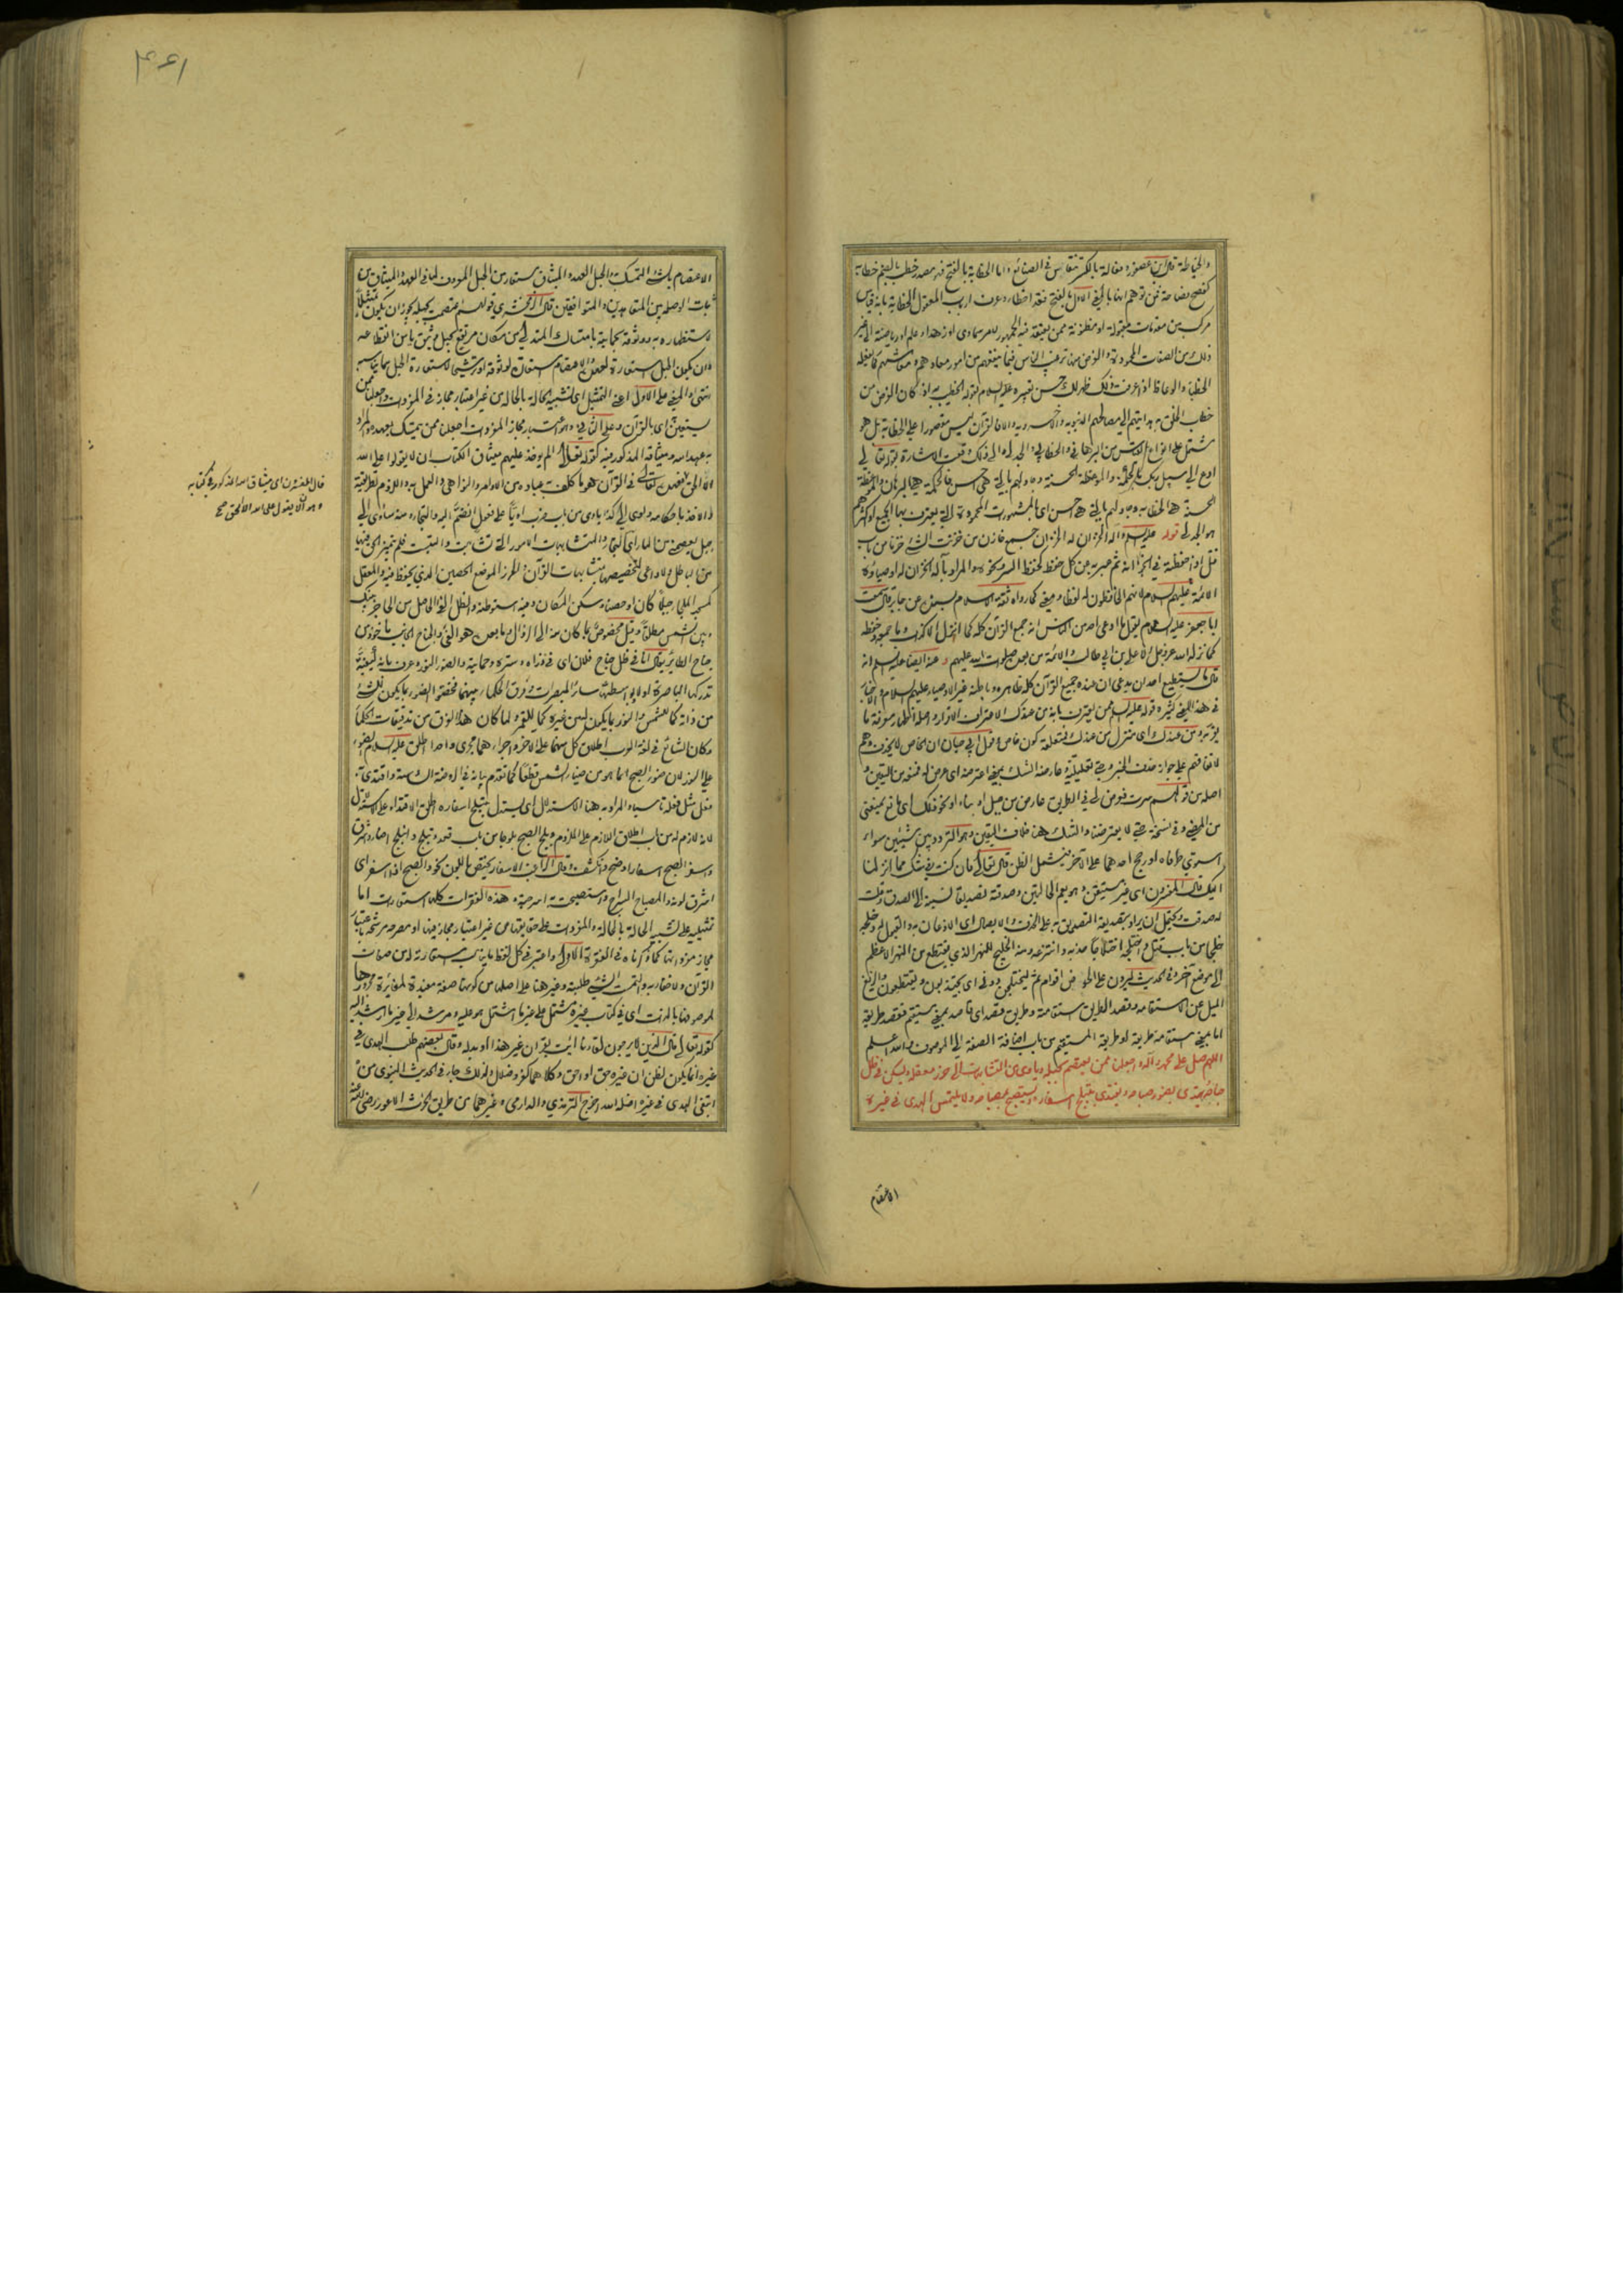 والخياطة قال ابن عصفور وفعالة بالكسر تنقاس في الصنائع واما الخطابة بالفتح فهو مصدر خطب بالضم خطابة
كفصح فصاحة فمن توهم انها بالمعنى الاول بالفتح فقد اخطأ وعرف ارباب المعقول الخطابة بانه قياس
مركب من مقدمات مقبولة او مظنونة ممن يعتقد فيه الجمهور لامر سماوي او زهد او علم او رياضة الى غير
ذلك من الصفات المحمودة والغرض منها ترغيب الناس فيما ينفعهم من امور معاشهم ومعادهم كما يفعله
الخطباء والوعاظ اذا عرفت ذلك ظهر لك حسن تعبيره عليه السلام بقوله الخطيب به اذ كان الغرض من
خطاب الخلق به هدايتهم الى مصالحهم الدنيوية والاخروية والا فالقرآن ليس مقصورا على الخطابة بل هو
مشتمل على انواع القياس من البرهاني والخطابي والجدلي والى ذلك وقعت الاشارة بقوله تعالى
ادع الى سبيل ربك بالحكمة والموعظة الحسنة وجادلهم بالتي هي احسن فالحكمة هي البرهان والموعظة
الحسنة هي الخطابة وجادلهم بالتي هي احسن اى بالمشهورات المحمودة التي يعترف بها الجميع او اكثرهم
هو الجدل قوله عليه السلام وآله الخزان له الخزان جمع خازن من خزنت الشئ خزنا من باب
قتل اذا حفظته في الخزانة ثم عبر به عن كل حفظ كحفظ السر ونحوه والمراد بآله الخزان له اوصياؤه
الائمة عليهم السلام لانهم الحافظون له لفظا ومعنى كما رواه ثقة الاسلام بسنده عن جابر قال سمعت
ابا جعفر عليه السلام يقول ما ادعى احد من الناس انه جمع القرآن كله كما انزل الا كذاب وما جمعه وحفظه
كما نزله الله عز وجل الا علي بن ابي طالب والائمة من بعده صلوات الله عليهم وعنه ايضا عليه السلم انه
قال ما يستطيع احد ان يدعى ان عنده جميع القرآن كله ظاهره وباطنه غير الاوصياء عليهم السلام والاخبار
في هذا المعنى كثيرة قوله عليه السلم ممن يعترف بانه من عندك الاعتراف الاقرار واصله اظهار معرفة ما
يقر به ومن عندك اى منزل من عندك فمتعلقه كون خاص وقول ابي حيان ان الخاص لا يحذف وهم
لاتفاقهم على جواز حذف الخبر وحتى تعليلية وعارضه الشك بمعنى اعترضه اى عرض له فمنعه من اليقين و
اصله من قولهم سرت فعرض لي في الطريق عارض من جبل او بناء او نحو ذلك اى مانع يمنعني
من المضي وفي نسخة حتى لا يعترضنا والشك هنا خلاف اليقين وهو التردد بين شيئين سواء
استوى طرفاه او رجح احدهما على الآخر فيشمل الظن قال تعالى فان كنت في شك مما انزلنا
اليك قال المفسرون اى غير مستيقن وهو يعم الحالتين وصدقته تصديقا نسبته الى الصدق وقلت
له صدقت ويحتمل ان يراد بتصديقه التصديق به على الحذف والايصال اى الاذعان به والقبول له وخلجه
خلجا من باب قتل واختلجه اختلاجا جذبه وانتزعه ومنه الخليج للنهر الذي يقتطع من النهر الاعظم
الى موضع آخر وفي الحديث ليردن على الحوض اقوام ثم ليختلجن دوني اى يجتذبون ويقتطعون والزيغ
الميل عن الاستقامة وقصد الطريق استقامته وطريق قصد اى قاصد بمعنى مستقيم فقصد طريقه
اما بمعنى استقامة طريقه او طريقه المستقيم من باب اضافة الصفة الى الموصوف والله اعلم
اللهم صل على محمد وآله واجعلنا ممن يعتصم بحبله وياوى من المتشابهات الى حرز معقله ويسكن في ظل
جناحه ويهتدى بضوء صباحه ويقتدى بتبلج اسفاره ويستصبح بمصباحه ولا يلتمس الهدى في غيره
الاعتصام
٤٤١
الاعتصام بالشئ التمسك به والحبل العهد والميثاق مستعار من الحبل المعروف لما في العهد والميثاق من
ثبات الوصلة بين المتعاهدين والمتوافقين قال الزمخشري قولهم اعتصمت بحبله يجوز ان يكون تمثيلا
لاستظهاره به ووثوقه بحمايته بامتساك المتدلي من مكان مرتفع بحبل وثيق يامن انقطاعه
وان يكون الحبل استعارة لعهده والاعتصام استعارة لوثوقه او ترشيحا لاستعارة الحبل بما يناسبه
انتهى والمعنى على الاول اعني التمثيل اى تشبيه الحالة بالحالة من غير اعتبار مجاز في المفردات واجعلنا ممن
يستعين اى بالقرآن وعلى الثاني وهو اعتبار مجاز المفردات اجعلنا ممن يتمسك بعهده والمراد
به عهد الله وميثاقه المذكور فيه كقوله تعالى الم يؤخذ عليهم ميثاق الكتاب ان لا يقولوا على الله
الا الحق فعهده تعالى في القرآن هو ما كلف به عباده من الاوامر والنواهي والعمل به واللزوم لطريقته
والاخذ باحكامه واوى الى كذا ياوى من باب ضرب اويا على فعول انضم اليه والتجأ ومنه سآوى الى
جبل يعصمني من الماء اى التجأ والمتشابهات الامور التي تشابهت والتبست فلم يتميز الحق فيها
من الباطل ولا داعي لتخصيصها بمتشابهات القرآن والحرز الموضع الحصين الذي يحفظ فيه والمعقل
كمسجد الملجأ جبلا كان او حصنا وسكن المكان وفيه استوطنه والظل الفئ الحاصل من الحاجز بينك
وبين الشمس مطلقا وقيل مخصوص بما كان منه الى الزوال وما بعده هو الفئ والجناح الجانب ماخوذ من
جناح الطائر يقال انا في ظل جناح فلان اى في ذراه وستره وحمايته والضوء النور وعرف بانه كيفية
تدركها الباصرة اولا وبواسطتها سائر المبصرات وفرق الحكماء بينهما فخصوا الضوء بما يكون للشئ
من ذاته كالشمس والنور بما يكون له من غيره كما للقمر ولما كان هذا الفرق من تدقيقات الحكماء
وكان الشائع في لغة العرب اطلاق كل منهما على الآخر واجراءهما مجرى واحدا اطلق عليه السلام الضوء
على النور لان ضوء الصبح انما هو من ضياء الشمس قطعا كما تقدم بيانه في الروضة السادسة واقتدى به
فعل مثل فعله تاسيا والمراد به هنا الاستدلال اى يستدل بتبلج اسفاره اطلق الاقتداء على الاستدلال
لانه لازم له من باب اطلاق اللازم على الملزوم وبلج الصبح بلوجا من باب قعد وتبلج وانبلج اضاء واشرق
واسفر الصبح اسفارا وضح وانكشف وقال الراغب الاسفار يختص باللون نحو والصبح اذا اسفر اى
اشرق لونه والمصباح السراج واستصبحت به اسرجته وهذه الفقرات كلها استعارات اما
تمثيلية على تشبيه الحالة بالحالة والمفردات على حقايقها من غير اعتبار مجاز فيها او مصرحة مرشحة باعتبار
مجاز مفرداتها كما ذكرناه في الفقرة الاولى واعتبر في كل لفظ ما يناسب استعارته له من صفات
القرآن ولا خفاء به والتمست الشئ طلبته وغير هنا على اصلها من كونها صفة مفيدة لمغايرة مجرورها
لموصوفها بالذات اى في كتاب غيره مشتمل على غير ما اشتمل هو عليه ومرشد الى غير ما ارشد اليه
كقوله تعالى قال الذين لا يرجون لقاءنا ائت بقرآن غير هذا او بدله وقال بعضهم طلب الهدى في
غيره انما يكون لظن ان غيره حق او احق وكلاهما كفر وضلال ولذلك جاء في الحديث النبوى من
ابتغى الهدى في غيره اضله الله اخرج الترمذي والدارمي وغيرهما من طريق الحارث الاعور رضى الله عنه
قال المفسرون اى ميثاق الله المذكور في كتابه
وهو ان لا يقول على الله الا الحق صح